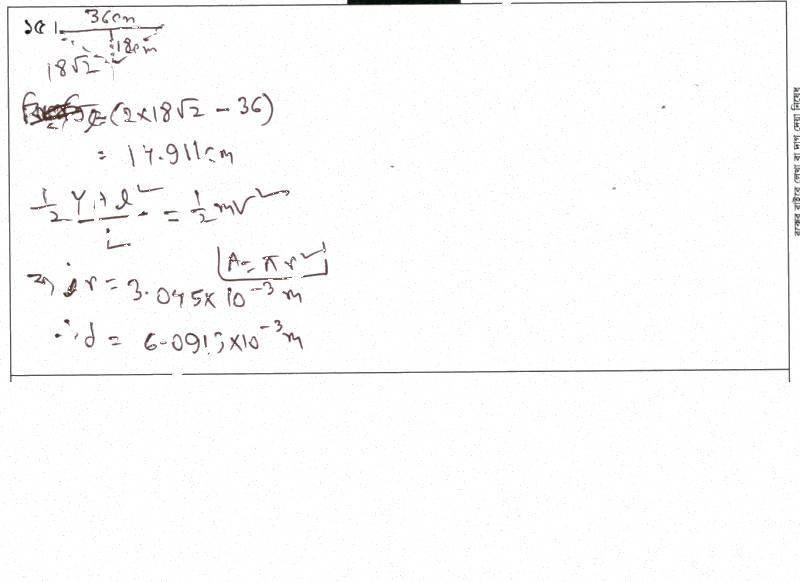 ১৫। 36cm
18cm
18√2
l = (2×18√2 − 36)
= 14.911cm
1/2 YAl²/L = 1/2 mv²
A = πr²
⇒ r = 3.045×10⁻³ m
∴ d = 6.091×10⁻³ m
বক্সের বাইরে লেখা বা দাগ দেয়া নিষেধ